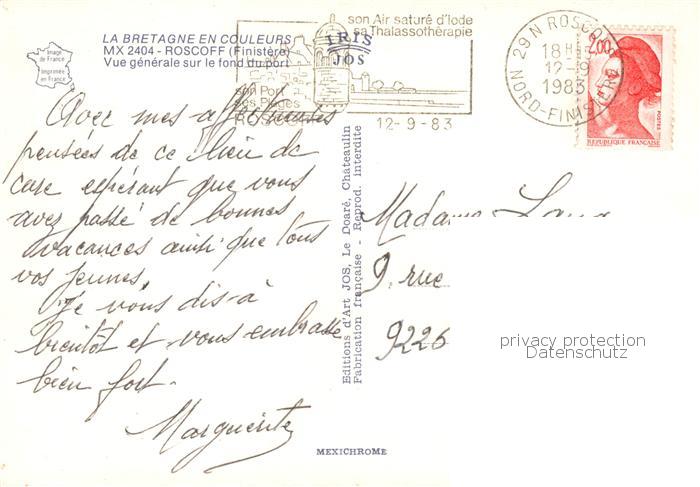 LA BRETAGNE EN COULEURS
MX 2404 - ROSCOFF (Finistère)
Vue générale sur le fond du port
Image de France
Imprimée en France
IRIS
JOS
son Air saturé d'Iode
sa Thalassothérapie
son Port
ses Plages
ROSCOFF
12-9-83
29 N ROSCOFF
18 H
12-9
1983
NORD-FINISTERE
2,00
POSTES
REPUBLIQUE FRANÇAISE
Avec mes affectueuses
pensées de ce lieu de
cure espérant que vous
avez passé de bonnes
vacances ainsi que tous
vos jeunes.
Je vous dis à
bientôt et vous embrasse
bien fort.
Marguerite
Editions d'Art JOS, Le Doaré, Chateaulin
Fabrication française - Reprod. interdite
Madame
9, rue
9226
privacy protection
Datenschutz
MEXICHROME